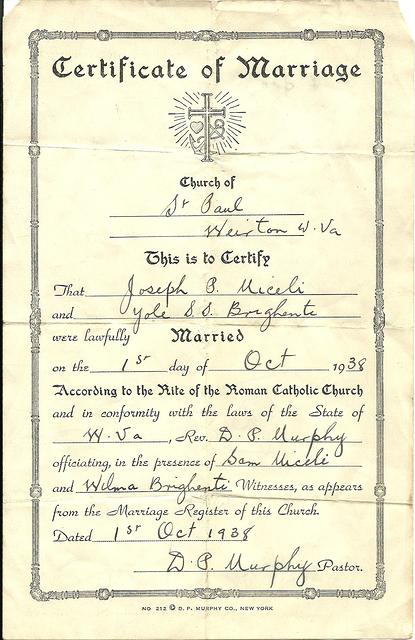 Certificate of Marriage
Church of
St Paul
Weirton W. Va
This is to Certify
That Joseph P. Miceli
and Yole S.S. Brighente
were lawfully Married
on the 1st day of Oct 1938
According to the Rite of the Roman Catholic Church
and in conformity with the laws of the State of
W. Va, Rev. D. P. Murphy
officiating, in the presence of Sam Miceli
and Wilma Brighenti Witnesses, as appears
from the Marriage Register of this Church.
Dated 1st Oct 1938
D. P. Murphy Pastor.
NO 212 © D. P. MURPHY CO., NEW YORK